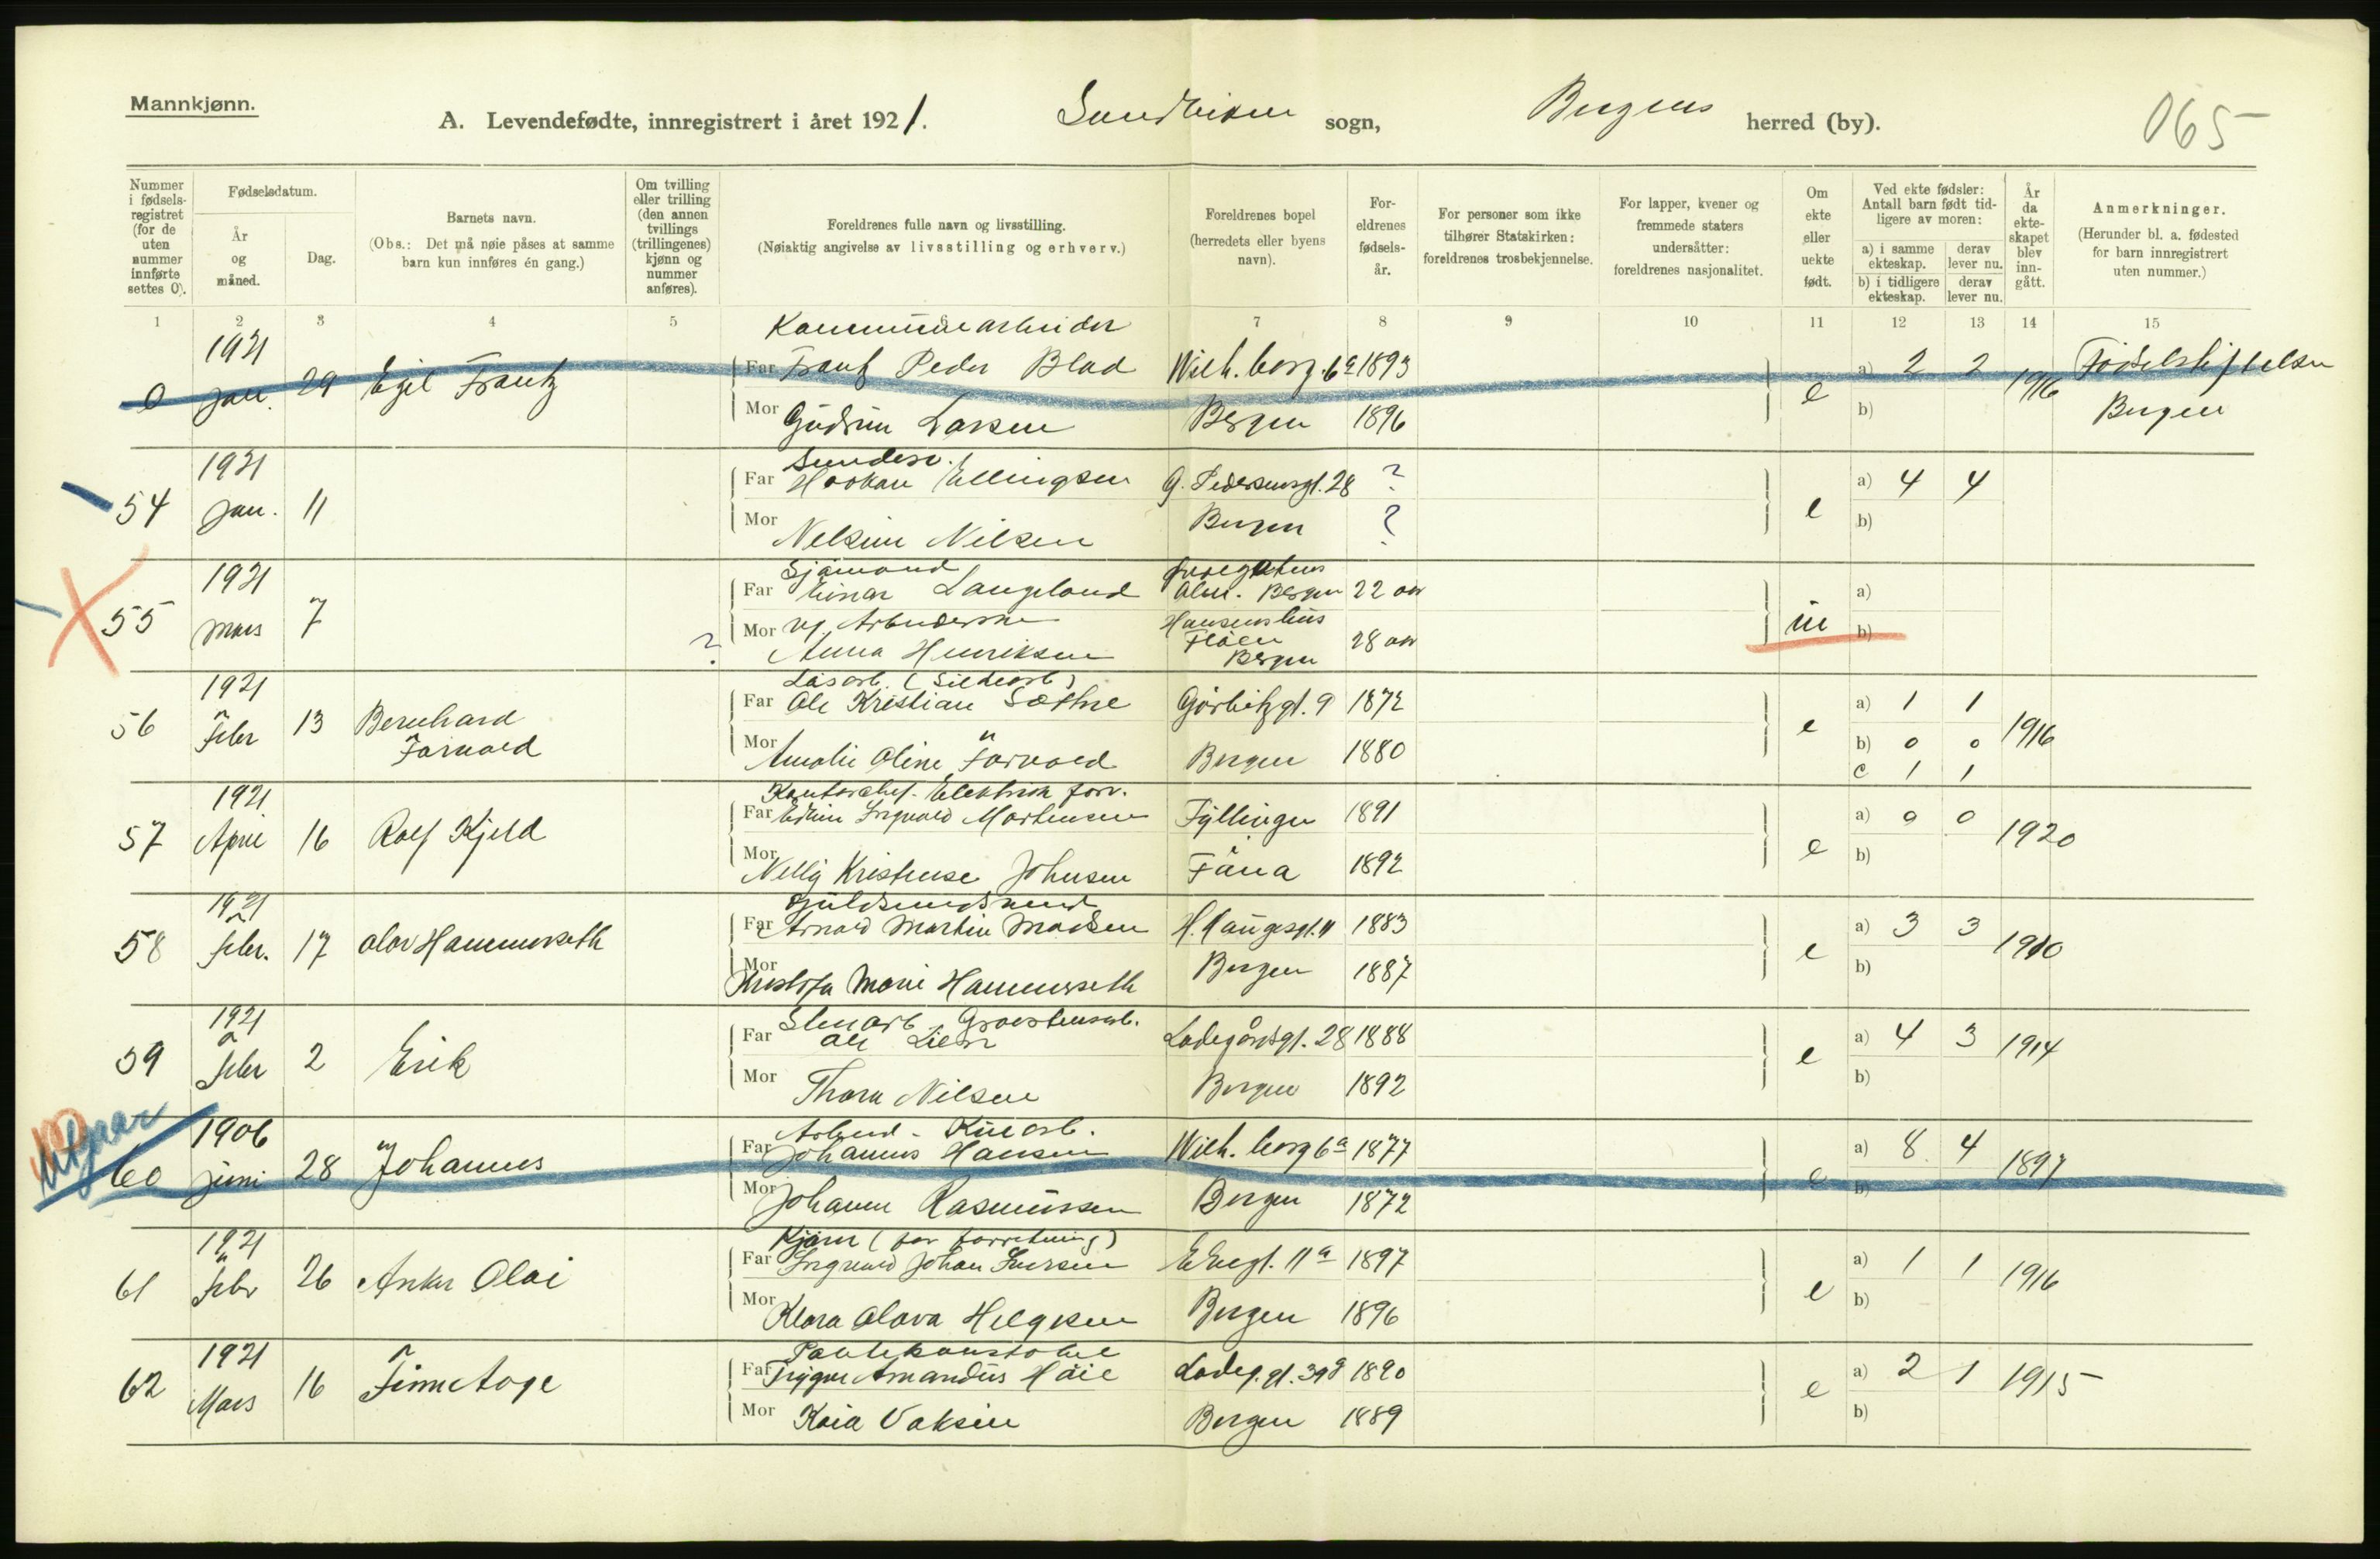 Mannkjønn.
A. Levendefødte, innregistrert i året 1921. Sandviken sogn, Bergens herred (by). 065
Nummer i fødsels-registret (for de uten nummer innførte settes 0).
Fødselsdatum.
År og måned.
Dag.
Barnets navn.
(Obs.: Det må nøie påses at samme barn kun innføres én gang.)
Om tvilling eller trilling (den annen tvillings (trillingenes) kjønn og nummer anføres).
Foreldrenes fulle navn og livsstilling.
(Nøiaktig angivelse av livsstilling og erhverv.)
Foreldrenes bopel (herredets eller byens navn).
For-eldrenes fødsels-år.
For personer som ikke tilhører Statskirken: foreldrenes trosbekjennelse.
For lapper, kvener og fremmede staters undersåtter: foreldrenes nasjonalitet.
Om ekte eller uekte født.
Ved ekte fødsler: Antall barn født tid-ligere av moren:
a) i samme ekteskap. derav lever nu.
b) i tidligere ekteskap. derav lever nu.
År da ekte-skapet blev inn-gått.
Anmerkninger.
(Herunder bl. a. fødested for barn innregistrert uten nummer.)
1 2 3 4 5 6 7 8 9 10 11 12 13 14 15
1921 Kommunearbeider
0 Jan. 29 Egil Frantz Far Frantz Peder Blad Wilh. borg. 6a 1893 e a) 2 2 1916 Fødselsstiftelsen
Mor Gudrun Larsen Bergen 1896 b) Bergen
1921
54 Jan. 11 Far Haakan Ellingsen G. Pedersensgt. 28 ? e a) 4 4
Mor Nelsine Nilsen Bergen ? b)
1921 Sjømand
55 Mars 7 Far Einar Langeland Bergen 22 aar u a)
Mor ug. Arbeiderske Hansens hus
? Anna Henriksen Fløen Bergen 28 aar b)
1921 Løsarb. (Sildearb)
56 Febr 13 Bernhard Farvold Far Ole Kristian Sæthre Gørbitzgt. 9 1872 e a) 1 1 1916
Mor Amalie Oline Farvold Bergen 1880 b) 0 0
c 1 1
1921 Kontorchef. Elektrisk forr.
57 April 16 Rolf Kjeld Far Edvin Ingvald Mortensen Fyllingen 1891 e a) 0 0 1920
Mor Nelly Kristense Johnsen Fana 1892 b)
1921 Guldsmedsvend
58 Febr. 17 Olav Hammerseth Far Arnold Martin Madsen H. Haugesgt. 11 1883 e a) 3 3 1910
Mor Kristofa Marie Hammerseth Bergen 1887 b)
1921 Stenarb. Gravstensarb.
59 Febr 2 Erik Far Ole Lien Ladegårdsgt. 28 1888 e a) 4 3 1914
Mor Thora Nilsen Bergen 1892 b)
Utgaar
1906 Arbeid. - Kularb.
60 Juni 28 Johannes Far Johannes Hansen Wilh. borg 6a 1877 e a) 8 4 1897
Mor Johanne Rasmussen Bergen 1872 b)
1921 Kjører (for forretning)
61 Febr 26 Anker Olai Far Ingvald Johan Iversen E Eregt. 11a 1897 e a) 1 1 1916
Mor Klara Olava Helgesen Bergen 1896 b)
1921 Politikonstabel
62 Mars 16 Finn Aage Far Trygve Amandus Høie Ladeg.gt. 39a 1890 e a) 2 1 1915
Mor Kaia Vaksin Bergen 1889 b)